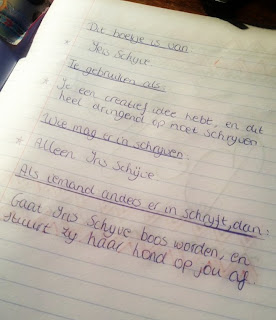 Dit boekje is van:
* Iris Schijve
Te gebruiken als:
* Je een creatief idee hebt, en dit
heel dringend op moet schrijven
Wie mag er in schrijven:
* Alleen Iris Schijve
Als iemand anders er in schrijft, dan:
Gaat Iris Schijve boos worden, en
stuurt zij haar hond op jou af.